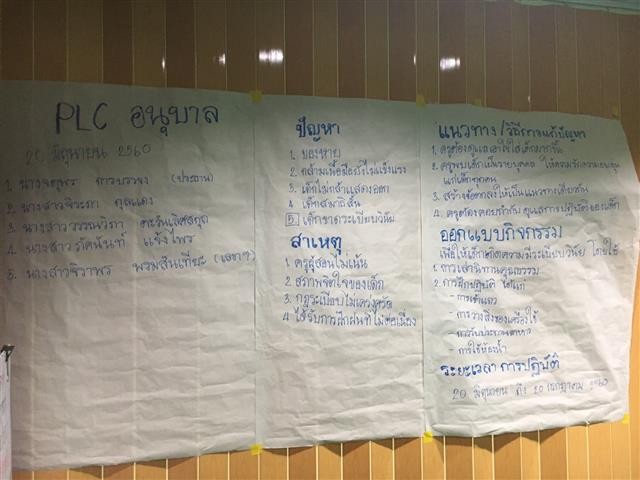 PLC อนุบาล
20 มิถุนายน 2560
1. นางจตุพร (ประธาน)
2. นางสาวจิระภา กุลแดง
3. นางสาววรรณวิภา ตะวันเลิศสกุล
4. นางสาวรัตนันท์ แจ้งไพร
5. นางสาวจิวาพร พรมสินเทียะ (เลขาฯ)
ปัญหา
1. ของหาย
2. กล้ามเนื้อมือยังไม่แข็งแรง
3. เด็กไม่กล้าแสดงออก
4. เด็กสมาธิสั้น
5. เด็กขาดระเบียบวินัย
สาเหตุ
1. ครูผู้สอนไม่เน้น
2. สภาพจิตใจของเด็ก
3. กฎระเบียบไม่เคร่งครัด
4. ได้รับการฝึกฝนที่ไม่ต่อเนื่อง
แนวทาง/วิธีการแก้ปัญหา
1. ครูต้องดูแลเอาใจใส่เด็กมากขึ้น
2. ครูพบเด็กเป็นรายบุคคล ให้ความรักความอบอุ่น
แก่เด็กทุกคน
3. สร้างข้อตกลงให้เป็นแนวทางเดียวกัน
4. ครูต้องคอยกำกับ ดูแลการปฏิบัติของเด็ก
ออกแบบกิจกรรม
เพื่อให้เด็กเกิดความมีระเบียบวินัย โดยใช้
1. การเล่านิทานคุณธรรม
2. การฝึกปฏิบัติ ได้แก่
- การเข้าแถว
- การวางสิ่งของเครื่องใช้
- การรับประทานอาหาร
- การใช้ห้องน้ำ
ระยะเวลาการปฏิบัติ
20 มิถุนายน ถึง 20 กรกฎาคม 2560